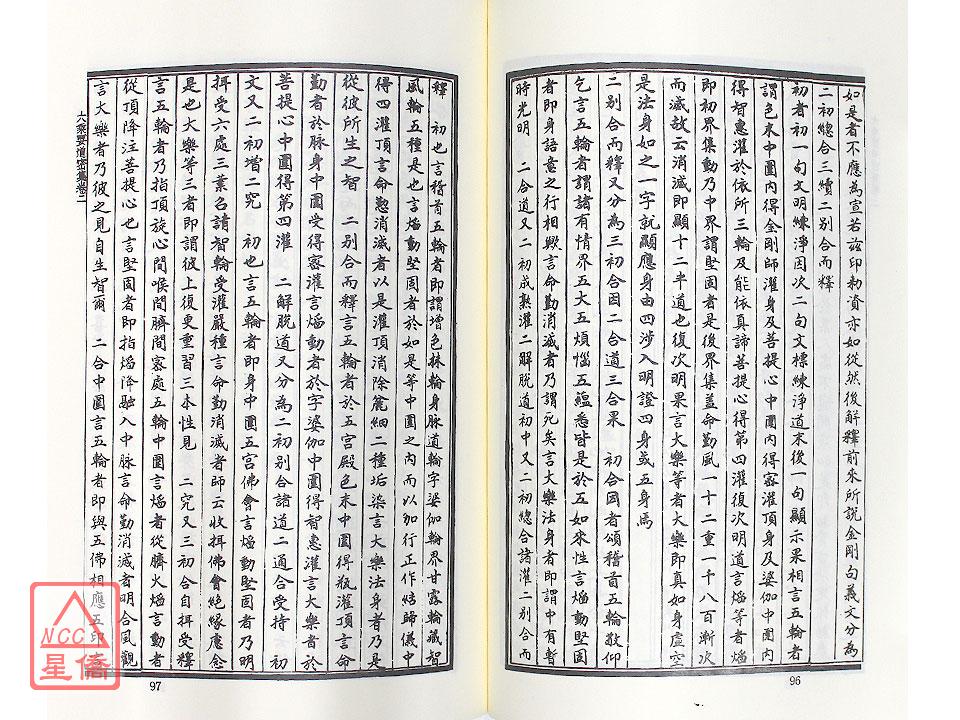 如是者不應為宣若茲印勑資亦如從然後解釋前来所說金剛句義文分為
二初總合三續二別合而釋
初者初一句文明練淨因次二句文標練淨道末後一句顯示果相言五輪者
謂色末中圍内得金剛師灌身及菩提心中圍内得密灌頂身及婆伽中圍内
得智惠灌於依所三輪及能依真諦菩提心得第四灌復次明道言焰等者焰
即初界集動乃中界謂堅固者是後界集盖命勤風一十二重一千八百漸次
而滅故云消滅即顯十二半道也復次明果言大樂等者大樂即真如身虛空
是法身如之一字就顯應身由四涉入明證四身或五身焉
二別合而釋又分為三初合因二合道三合果 初合因者頌稽首五輪敬仰
乞言五輪者謂諸有情界五大五煩惱五藴悉皆是於五如来性言焰動堅固
者即身語意之行相糗言命勤消滅者乃謂死矣言大樂法身者即謂中有暫
時光明 二合道又二初成熟灌二解脫道初中又二初總合諸灌二別合而
96
釋 初也言稽首五輪者即謂增色抹輪身脉道輪字婆伽輪界甘露輪藏智
風輪五種是也言焰動堅固者於如是等中圍之内而以加行正作結歸儀中
得四灌頂言命懃消滅者以是灌頂消除麄細二種垢染言大樂法身者乃是
從彼所生之智 二別合而釋言五輪者於五宫殿色末中圍得瓶灌頂言命
勤者於脉身中圍受得密灌言焰動者於字婆伽中圍得智惠灌言大樂者於
菩提心中圍得第四灌 二解脫道又分為二初別合諸道二通合受持 初
文又二初增二究 初也言五輪者即身中圍五宫佛會言焰動堅固者乃明
揖受六處三業名請智輪受灌嚴種言命勤消滅者師云收揖佛會絶緣應念
是也大樂等三者即謂彼上復更重習三本性見 二究又三初合自揖受釋
言五輪者乃指頂旋心間喉間臍間密處五輪中圍言焰者從臍火焰言動者
從頂降注菩提心也言堅固者即指焰降融入中脉言命勤消滅者明合風觀
言大樂者乃彼之見自生智爾 二合中圍言五輪者即與五佛相應五印
大乘要道密集卷二
97
NCC
星僑